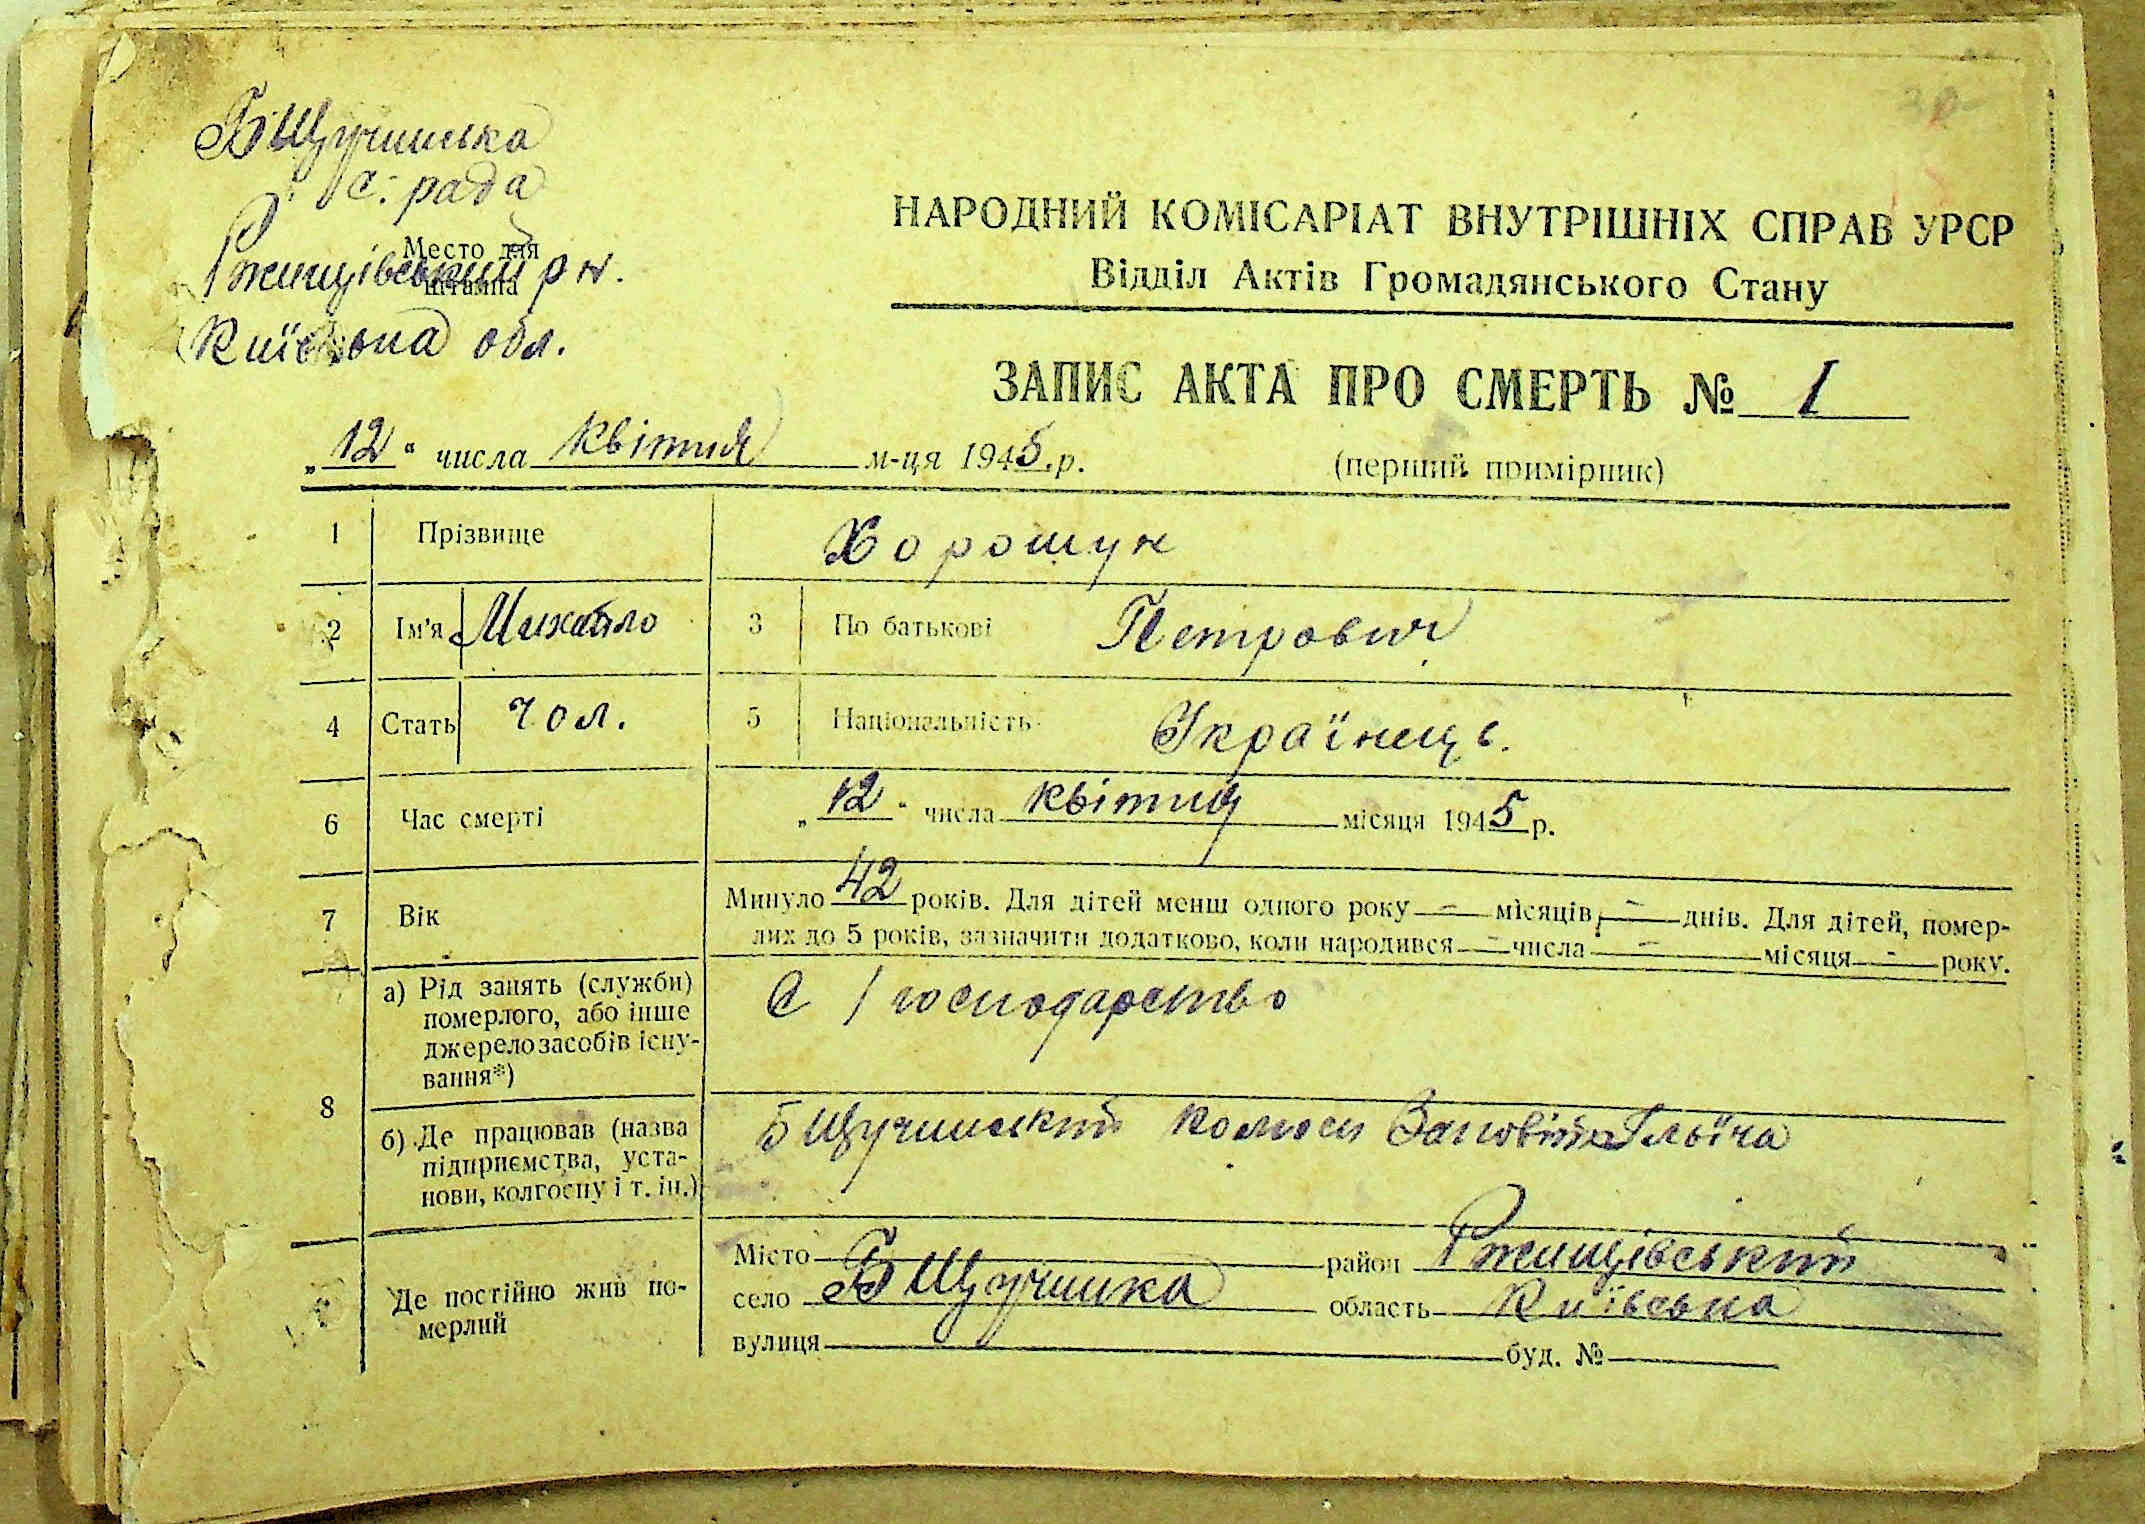 Б Щучинська
с. рада
Место для
штампа
Ржищівський р н.
Київська обл.
НАРОДНИЙ КОМІСАРІАТ ВНУТРІШНІХ СПРАВ УРСР
Відділ Актів Громадянського Стану
ЗАПИС АКТА ПРО СМЕРТЬ № 1
„12“ числа квітня м-ця 1945 р.
(перший примірник)
1 Прізвище Хорошун
2 Ім'я Михайло 3 По батькові Петрович
4 Стать чол. 5 Національність Українець.
6 Час смерті „12“ числа квітня місяця 1945 р.
7 Вік Минуло 42 років. Для дітей менш одного року — місяців, — днів. Для дітей, помер-
лих до 5 років, зазначити додатково, коли народився — числа — місяця — року.
8 а) Рід занять (служби)
померлого, або інше
джерело засобів існу-
вання*)
С / господарство
б) Де працював (назва
підприємства, уста-
нови, колгоспу і т. ін.)
Б Щучинський Заповіт Ілліча
Де постійно жив по-
мерлий
Місто район Ржищівський
село Б Щучинка область Київська
вулиця буд. №